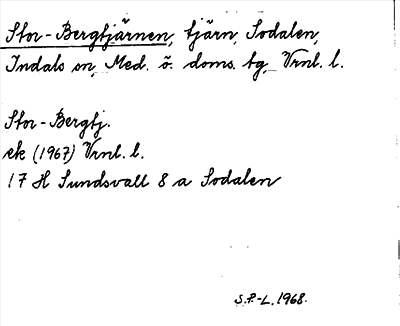 Stor-Bergtjärnen, tjärn, Sodalen,
Indals sn, Med. ö. doms. tg, Vrnl. l.
Stor-Bergtj.
ek (1967) Vrnl. l.
17 H Sundsvall 8 a Sodalen
S.P.-L. 1968.